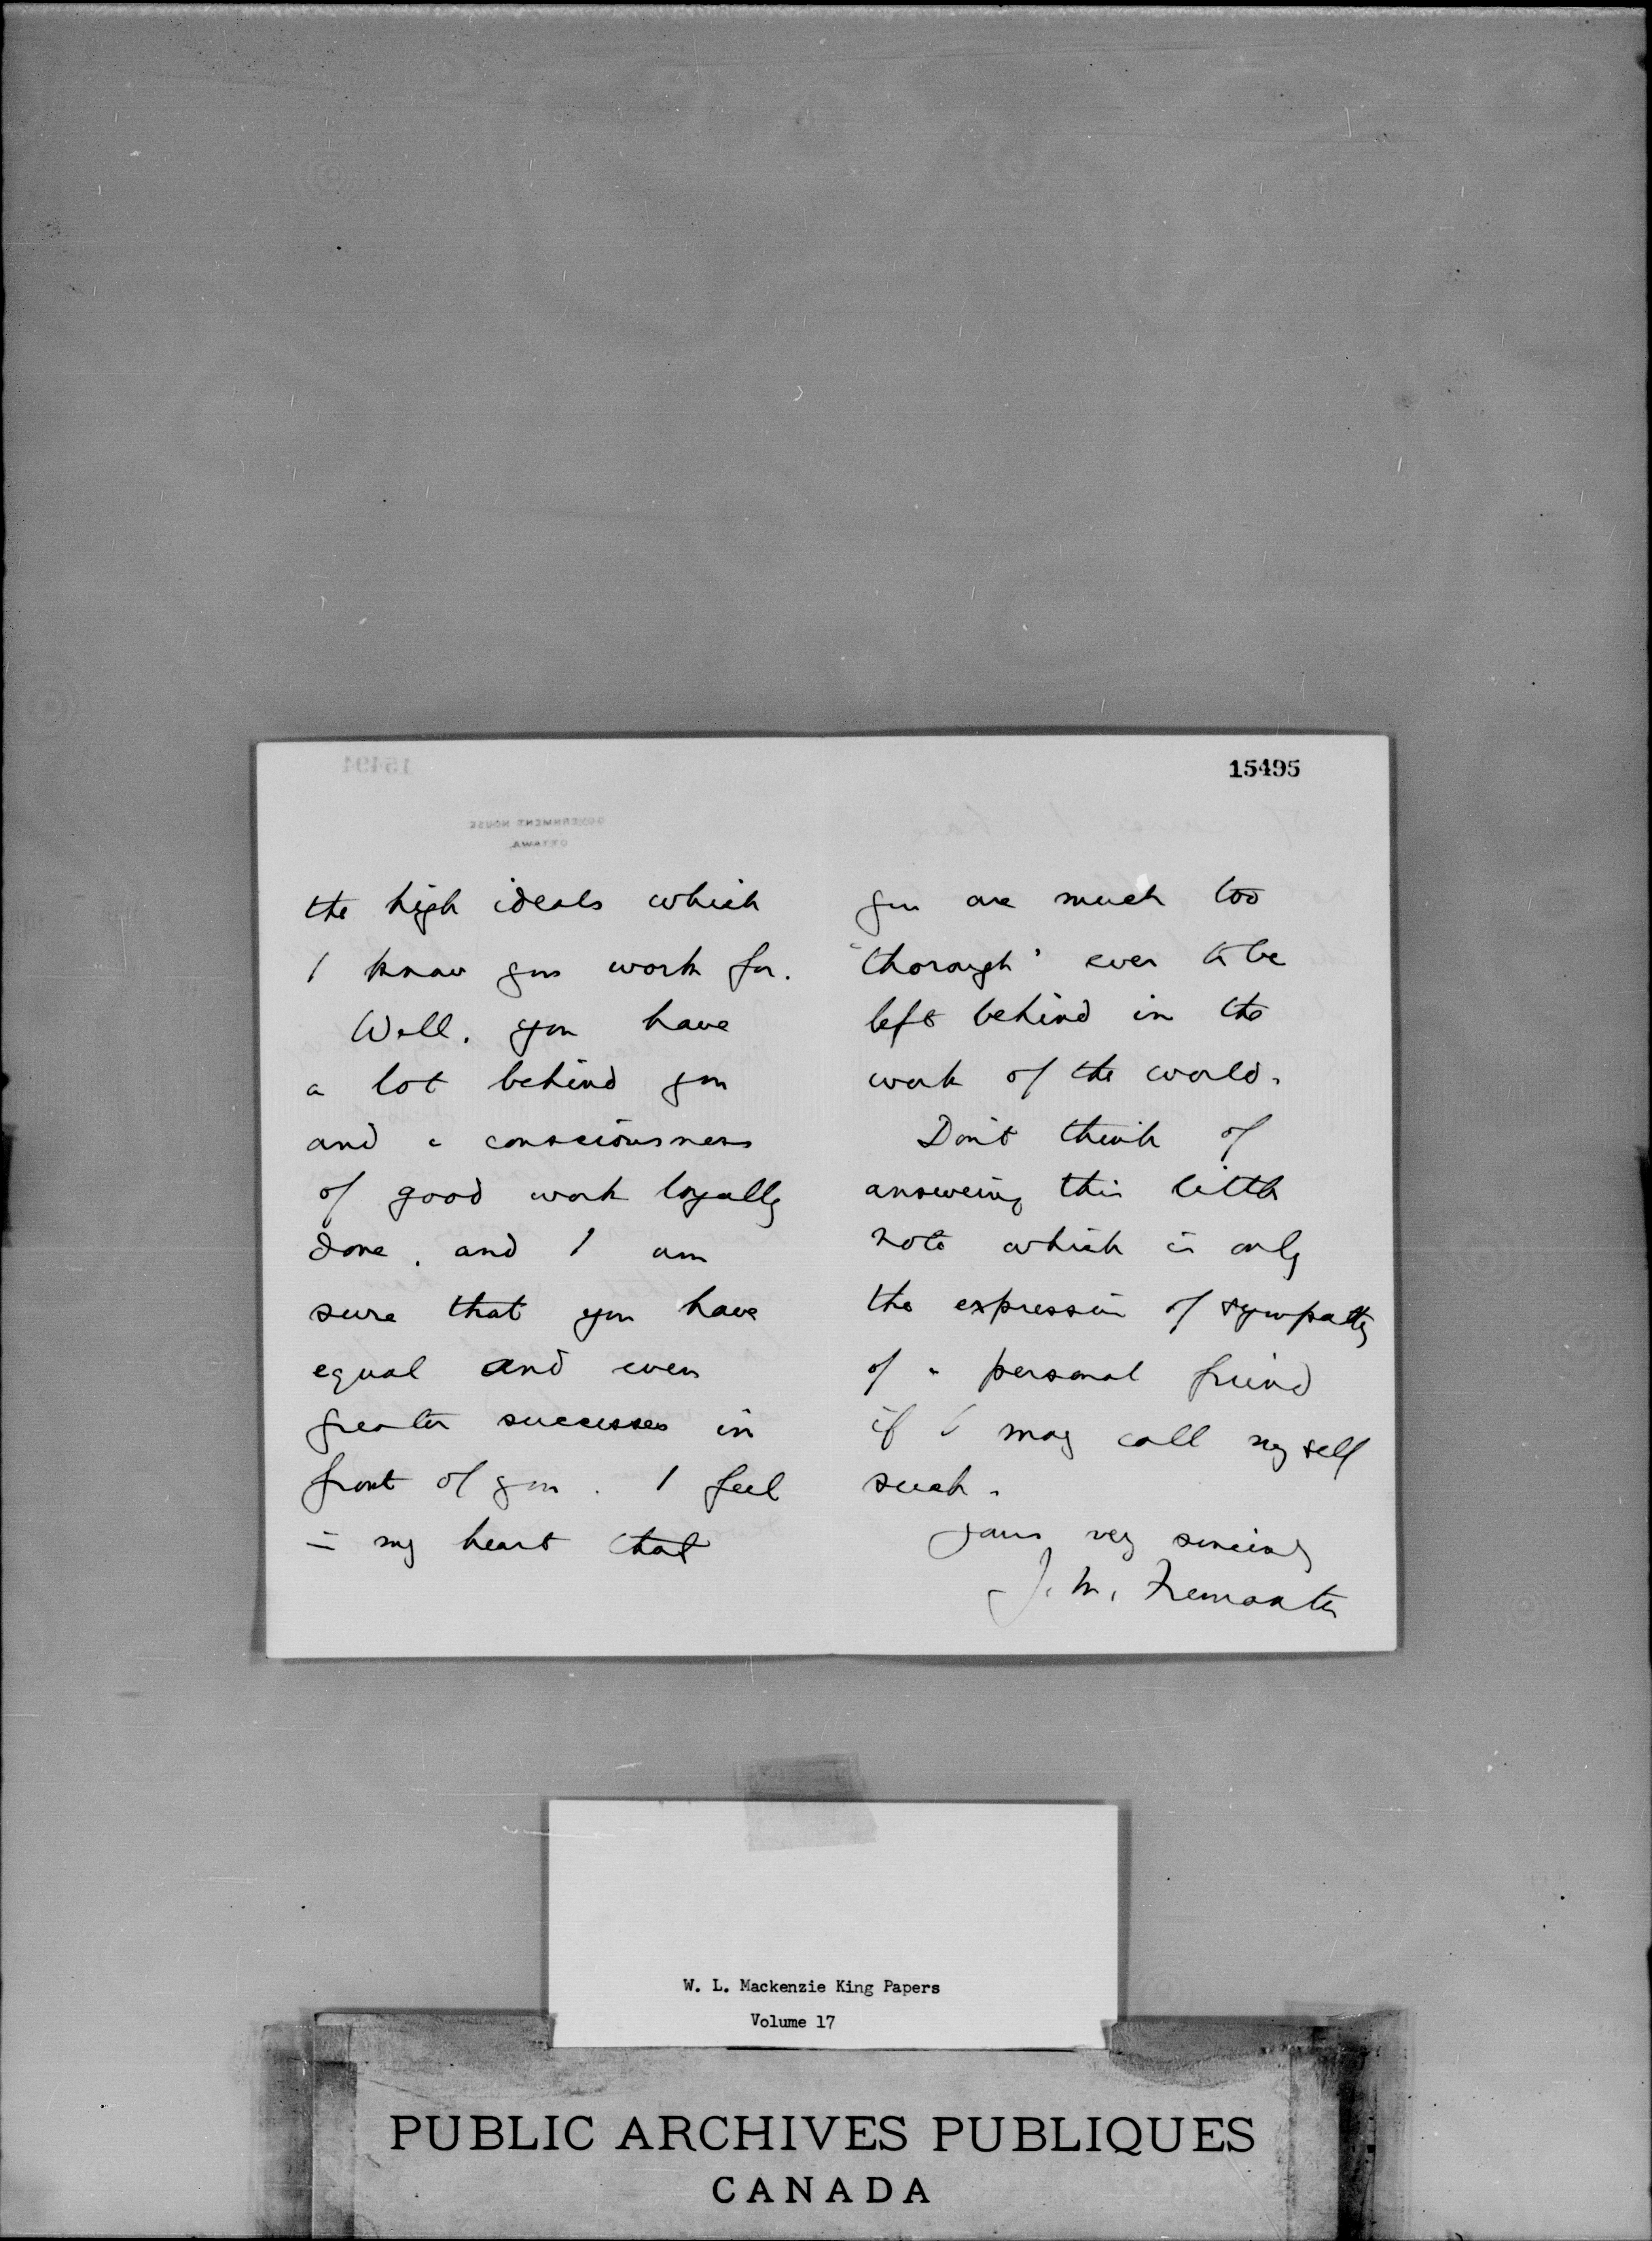 15495
the high ideals which
I know you work for.
Well, you have
a lot behind you
and a consciousness
of good work loyally
done, and I am
sure that you have
equal and even
greater successes in
front of you. I feel
in my heart that
you are much too
"thorough" ever to be
left behind in the
work of the world.
Don't think of
answering this little
note which is only
the expression of sympathy
of a personal friend
if I may call myself
such.
Yours very sincerely
15494
GOVERNMENT HOUSE
OTTAWA
W. L. Mackenzie King Papers
Volume 17
PUBLIC ARCHIVES PUBLIQUES
CANADA